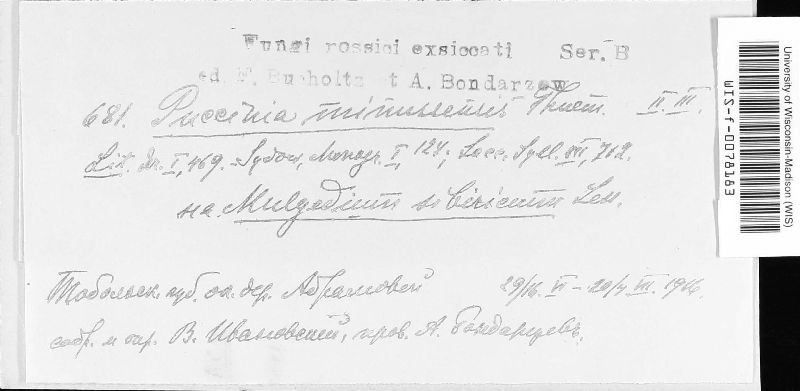 Fungi rossici exsiccati Ser. B
ed. F. Bucholtz et A. Bondarzew
681. Puccinia minussensis Thuem. II. III.
Lit. I, 469. Sydow, Monogr. I, 124; Sacc. Syll. VII, 702.
на Mulgedium sibiricum Less.
Тобольск. губ. ок. дер. Абрамовой 29/16. VI – VII. 1916.
собр. и опр. В. Ивановский, пров. А. Бондарцевъ.
University of Wisconsin-Madison (WIS)
WIS-f-0078183